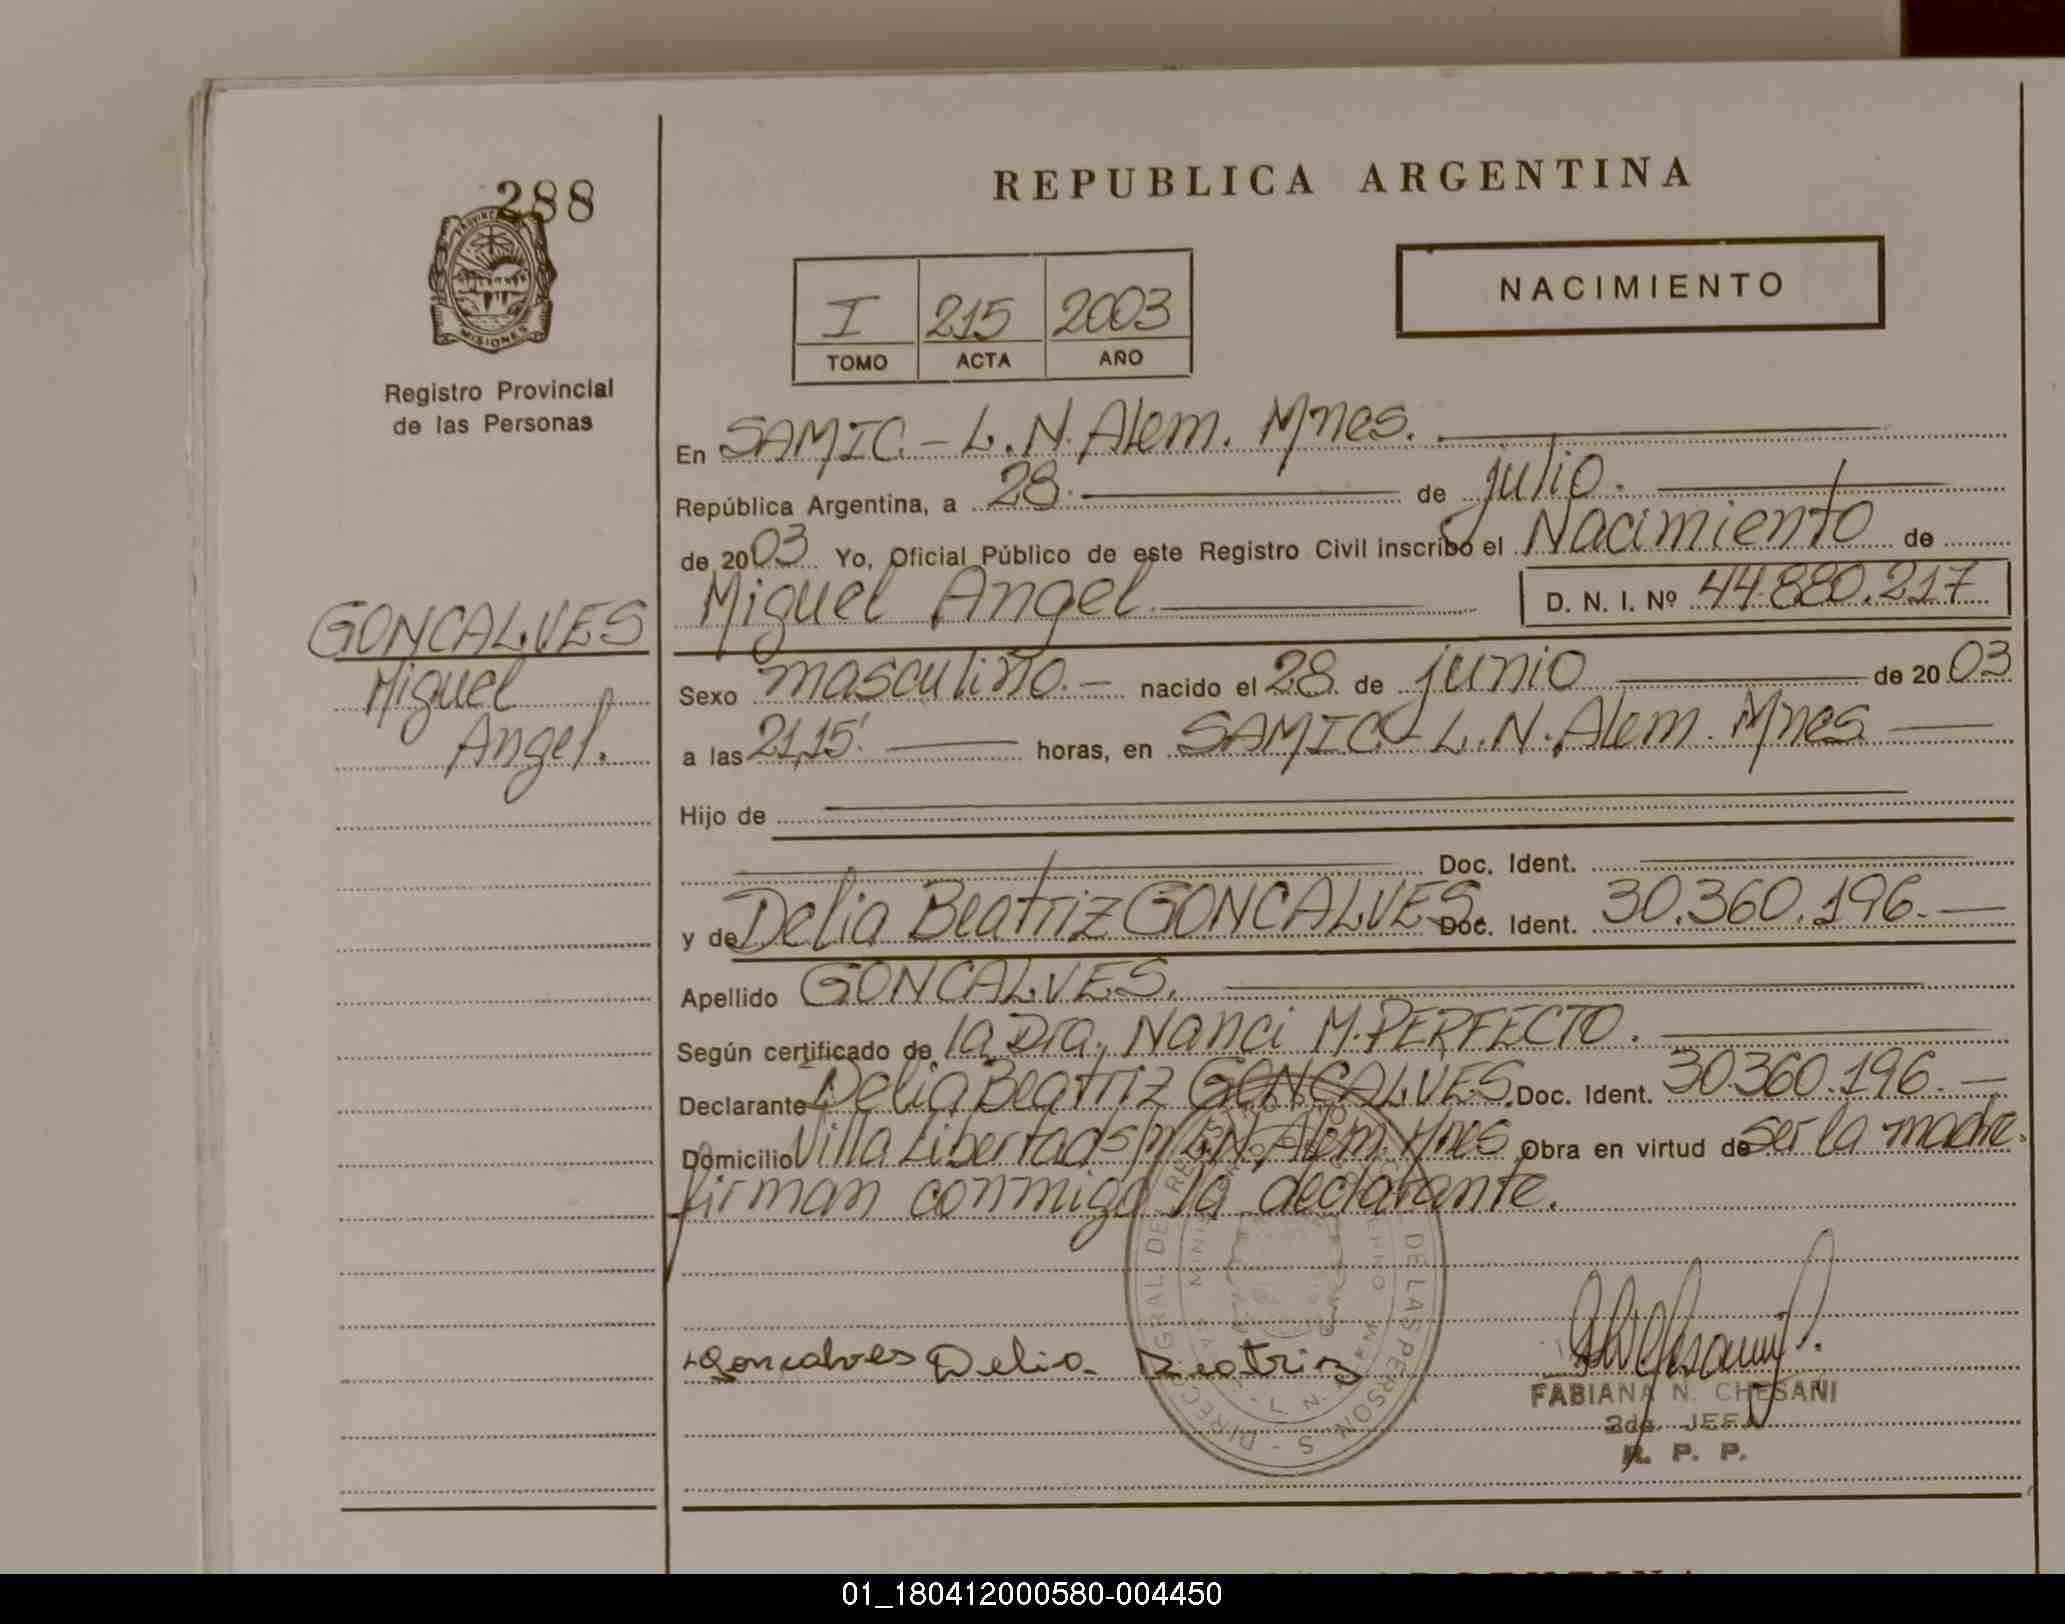 288
PROVINCIA
MISIONES
Registro Provincial
de las Personas
GONCALVES
Miguel
Angel.
REPUBLICA ARGENTINA
NACIMIENTO
I 215 2003
TOMO ACTA AÑO
En SAMIC - L. N. Alem. Mnes.
República Argentina, a 28 de julio.
de 2003 Yo, Oficial Público de este Registro Civil inscribo el Nacimiento de
Miguel Angel. D. N. I. Nº 44.880.217
Sexo masculino. - nacido el 28 de junio de 2003
a las 21,15' horas, en SAMIC - L. N. Alem. Mnes
Hijo de
Doc. Ident.
y de Delia Beatriz GONCALVES Doc. Ident. 30.360.196. -
Apellido GONCALVES.
Según certificado de la Dra. Nanci M. PERFECTO.
Declarante Delia Beatriz GONCALVES. Doc. Ident. 30.360.196. -
Domicilio Villa Libertad s/n L.N. Alem. Mnes Obra en virtud de ser la madre.
firman conmigo la declarante.
Goncalves Delia Beatriz
FABIANA N. CHESANI
2da. JEFA
R. P. P.
01_180412000580-004450